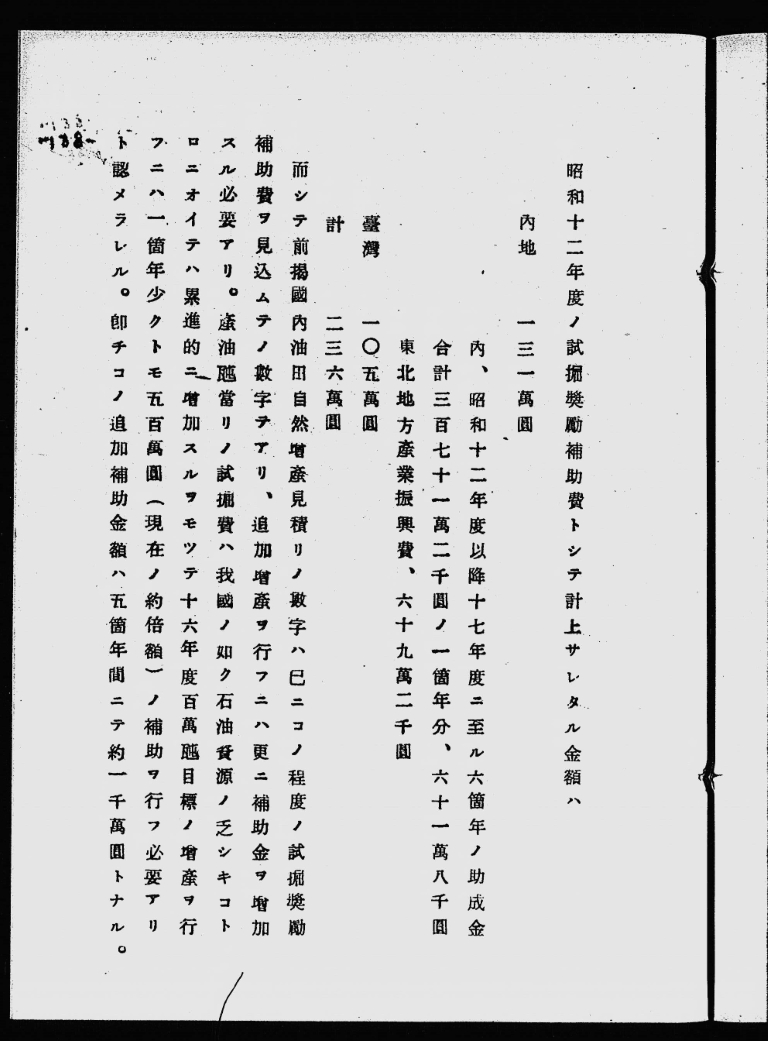 昭和十二年度ノ試掘奬勵補助費トシテ計上サレタル金額ハ
內地　一三一萬圓
內、昭和十二年度以降十七年度ニ至ル六箇年ノ助成金
合計三百七十一萬二千圓ノ一箇年分、六十一萬八千圓
東北地方產業振興費、六十九萬二千圓
臺灣　一〇五萬圓
計　二三六萬圓
而シテ前揭國內油田自然增產見積リノ數字ハ已ニコノ程度ノ試掘奬勵
補助費ヲ見込ムテノ數字テアリ、追加增產ヲ行フニハ更ニ補助金ヲ增加
スル必要アリ。產油瓲當リノ試掘費ハ我國ノ如ク石油資源ノ乏シキコト
ロニオイテハ累進的ニ增加スルヲモツテ十六年度百萬瓲目標ノ增產ヲ行
フニハ一箇年少クトモ五百萬圓(現在ノ約倍額)ノ補助ヲ行フ必要アリ
ト認メラレル。卽チコノ追加補助金額ハ五箇年間ニテ約一千萬圓トナル。